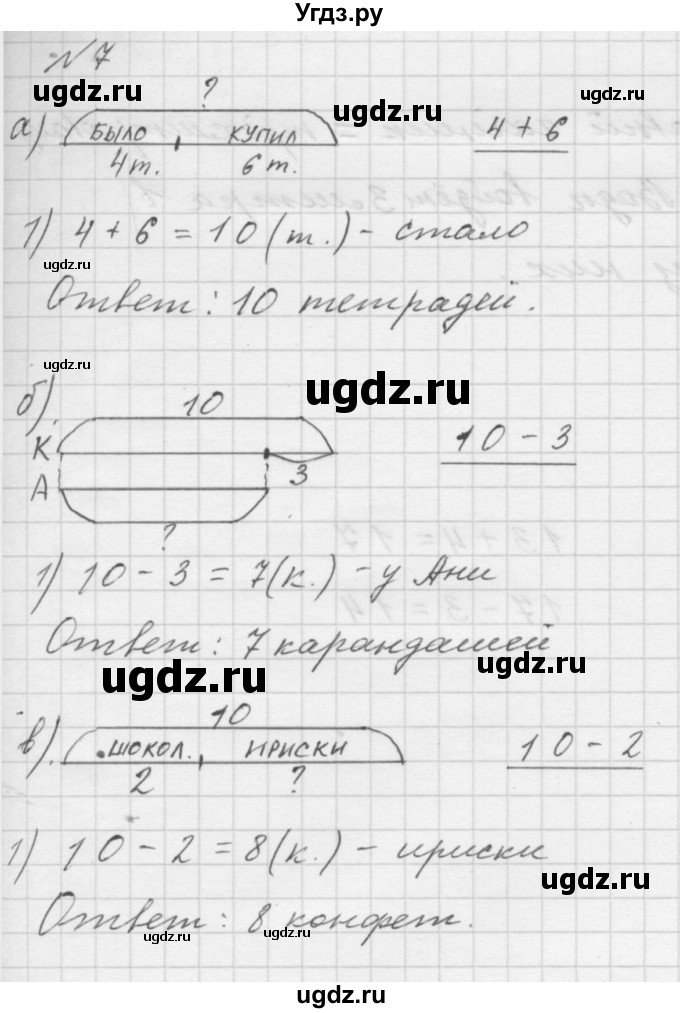 Угдз.ру
№7
ugdz.ru ugdz.ru
?
а) БЫЛО КУПИЛ 4+6
4т. 6т.
ugdz.ru ugdz.ru
1) 4+6=10(т.) - стало
ugdz.ru ugdz.ru
Ответ: 10 тетрадей.
ugdz.ru ugdz.ru
б) 10
К 10-3
3
А
?
1) 10-3=7(к.) - у Ани
Ответ: 7 карандашей
ugdz.ru ugdz.ru
10
в). ШОКОЛ. ИРИСКИ 10-2
2 ?
ugdz.ru ugdz.ru
1) 10-2=8(к.) - ириски
ugdz.ru
Ответ: 8 конфет.
ugdz.ru ugdz.ru
ugdz.ru